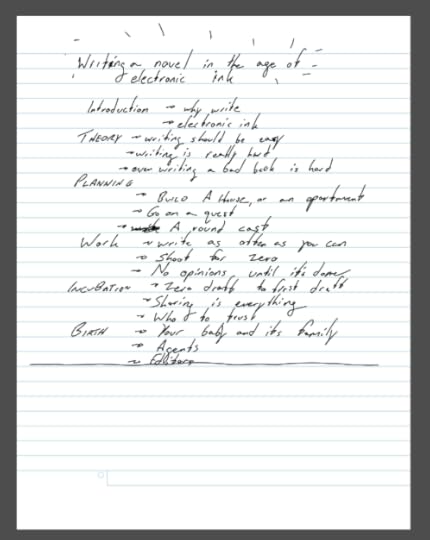 Writing a novel in the age of
electronic ink
Introduction → why write
→ electronic ink
THEORY → writing should be easy
→ writing is really hard
→ even writing a bad book is hard
PLANNING
→ BUILD A House, or an apartment
→ Go on a quest
→ A round cast
Work → write as often as you can
→ Shoot for zero
→ No opinions until it's done
INCUBATION → Zero draft to first draft
→ Sharing is everything
→ Who to trust
BIRTH → Your baby and its family
→ Agents
→ Editors